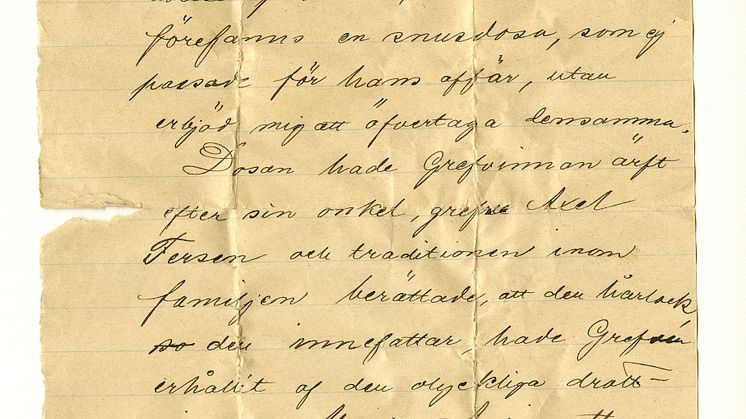 förefanns en snusdosa, som ej
passade för hans affär, utan
erbjöd mig att öfvertaga densamma.
Dosan hade Grefvinnan ärft
efter sin onkel, grefve Axel
Fersen och traditionen inom
familjen berättade, att den hårlock
so den innefattar, hade Grefven
erhållit af den olyckliga drott-